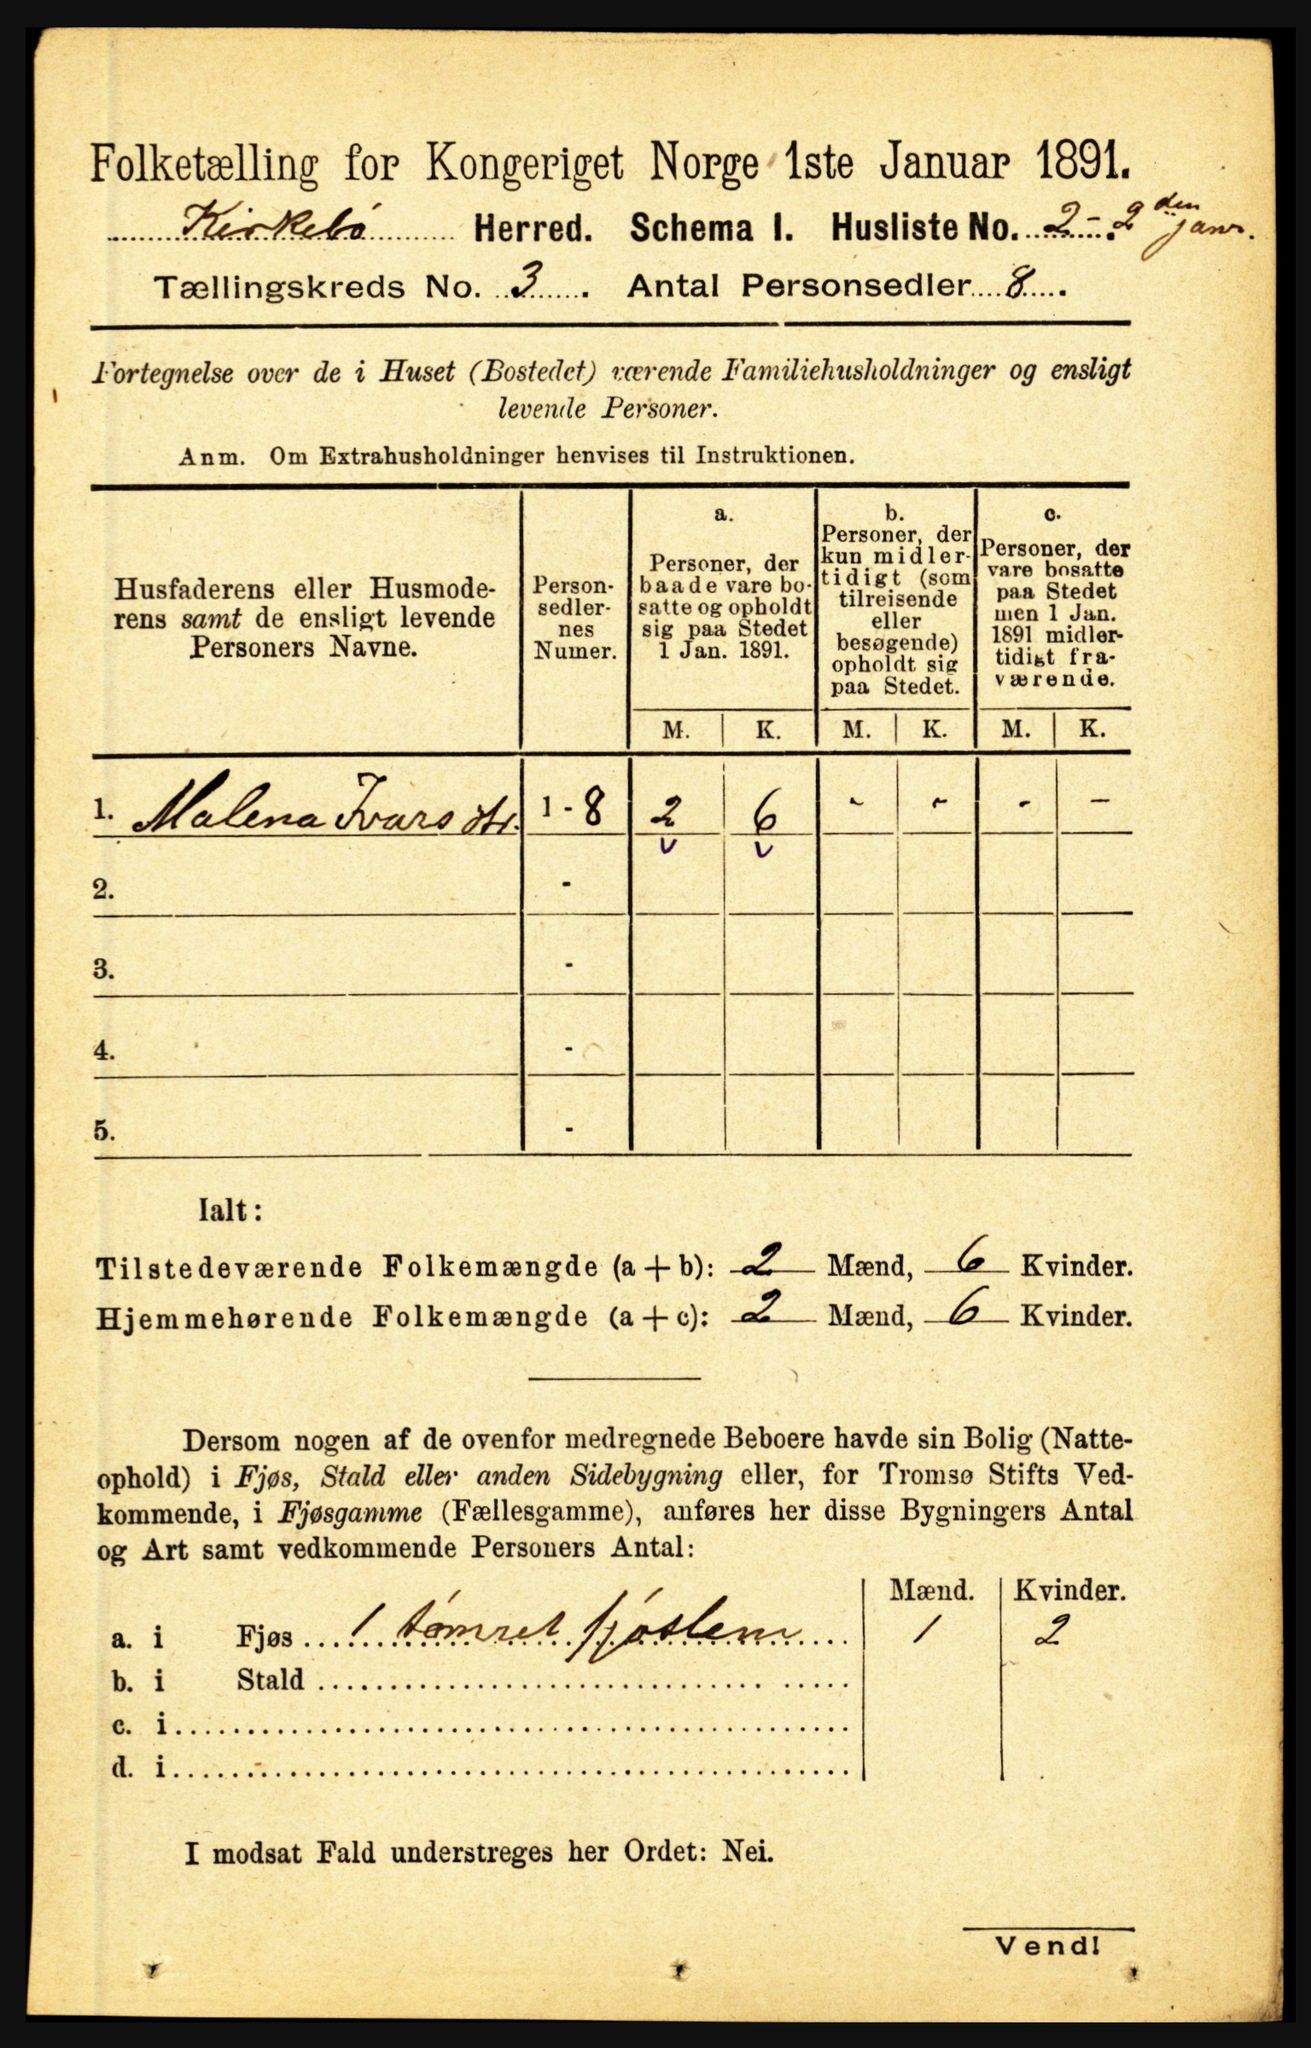 Folketælling for Kongeriget Norge 1ste Januar 1891.
Kirkebø Herred. Schema I. Husliste No. 2 - 2den janr.
Tællingskreds No. 3. Antal Personsedler 8.
Fortegnelse over de i Huset (Bostedet) værende Familiehusholdninger og ensligt
levende Personer.
Anm. Om Extrahusholdninger henvises til Instruktionen.
Husfaderens eller Husmode-
rens samt de ensligt levende
Personers Navne.
Person-
sedler-
nes
Numer.
a.
Personer, der
baade vare bo-
satte og opholdt
sig paa Stedet
1 Jan. 1891.
b.
Personer, der
kun midler-
tidigt (som
tilreisende
eller
besøgende)
opholdt sig
paa Stedet.
c.
Personer, der
vare bosatte
paa Stedet
men 1 Jan.
1891 midler-
tidigt fra-
værende.
M. K. M. K. M. K.
1. Malena Ivars dtr. 1 - 8 2 6 - - - -
2. -
3. -
4. -
5. -
Ialt:
Tilstedeværende Folkemængde (a + b): 2 Mænd, 6 Kvinder.
Hjemmehørende Folkemængde (a + c): 2 Mænd, 6 Kvinder.
Dersom nogen af de ovenfor medregnede Beboere havde sin Bolig (Natte-
ophold) i Fjøs, Stald eller anden Sidebygning eller, for Tromsø Stifts Ved-
kommende, i Fjøsgamme (Fællesgamme), anføres her disse Bygningers Antal
og Art samt vedkommende Personers Antal:
Mænd. Kvinder.
a. i Fjøs 1 tømret fjøslem 1 2
b. i Stald
c. i
d. i
I modsat Fald understreges her Ordet: Nei.
Vend!